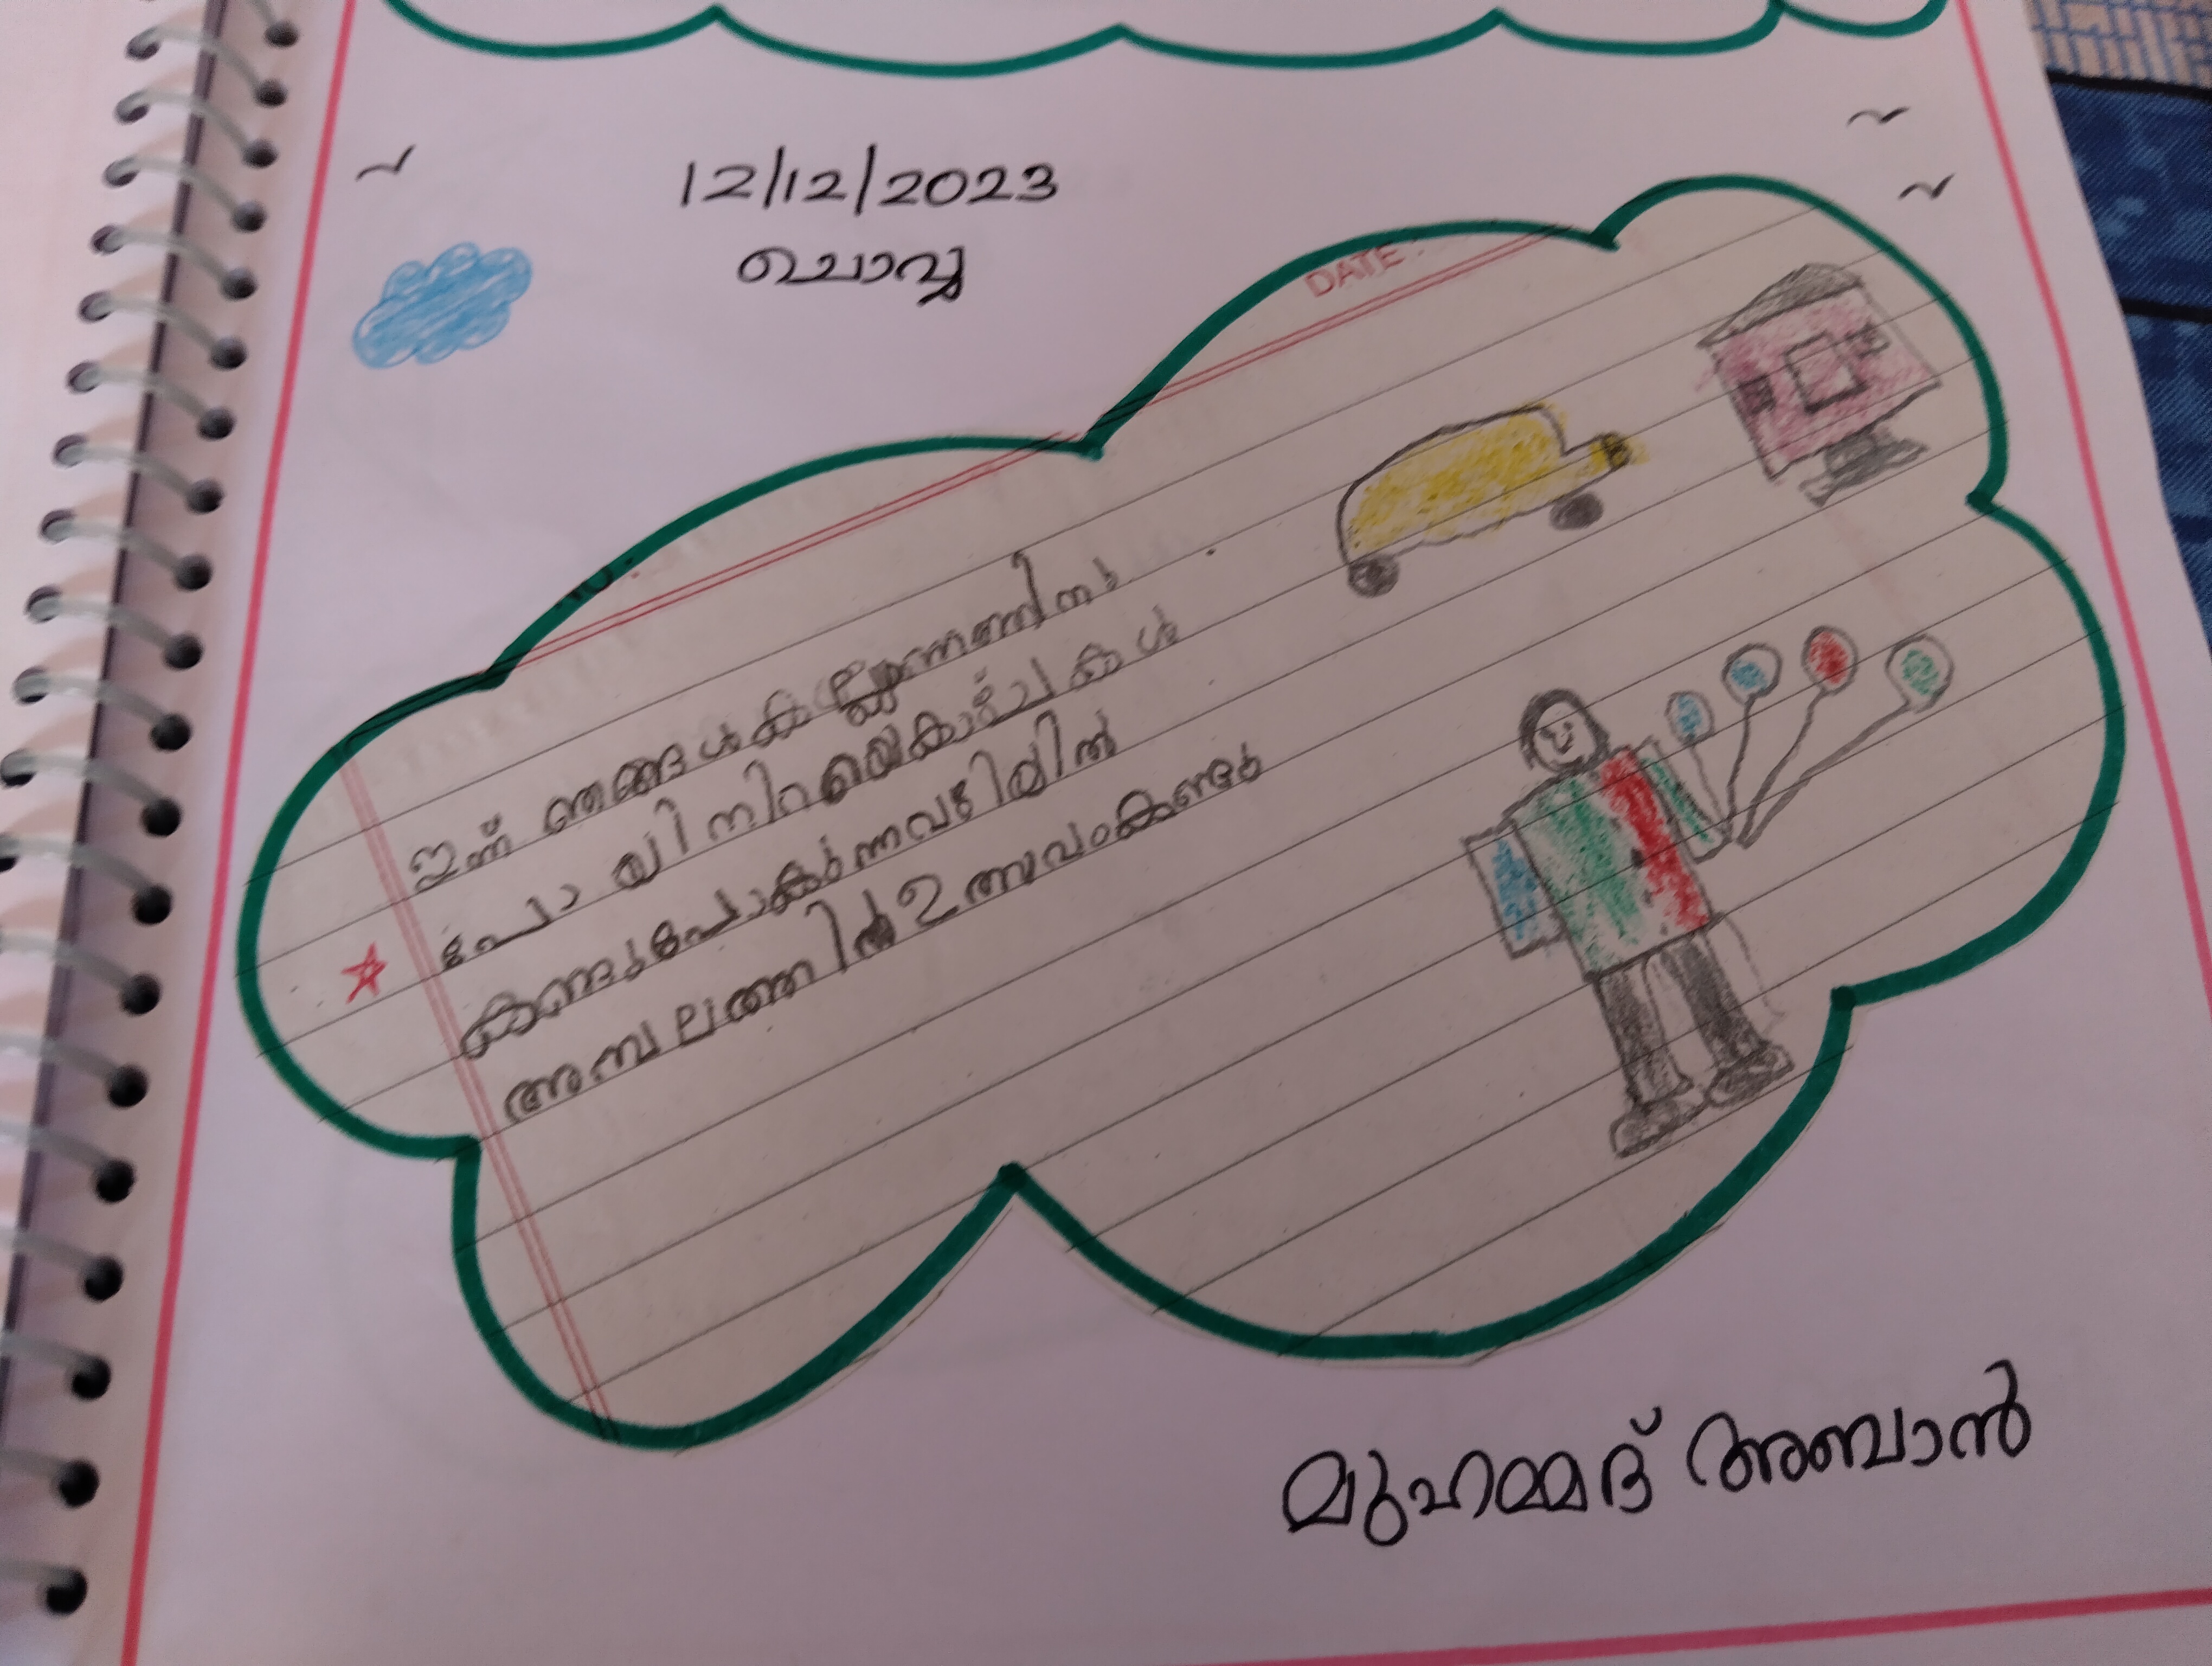 12/12/2023
ചൊവ്വ
DATE:
ഇന്ന് ഞങ്ങൾ
പോയി നിറയെ കാഴ്ചകൾ
കണ്ടു പോകുന്ന വഴിയിൽ
അമ്പലത്തിൽ ഉത്സവം കണ്ടു
മുഹമ്മദ് അബാൻ